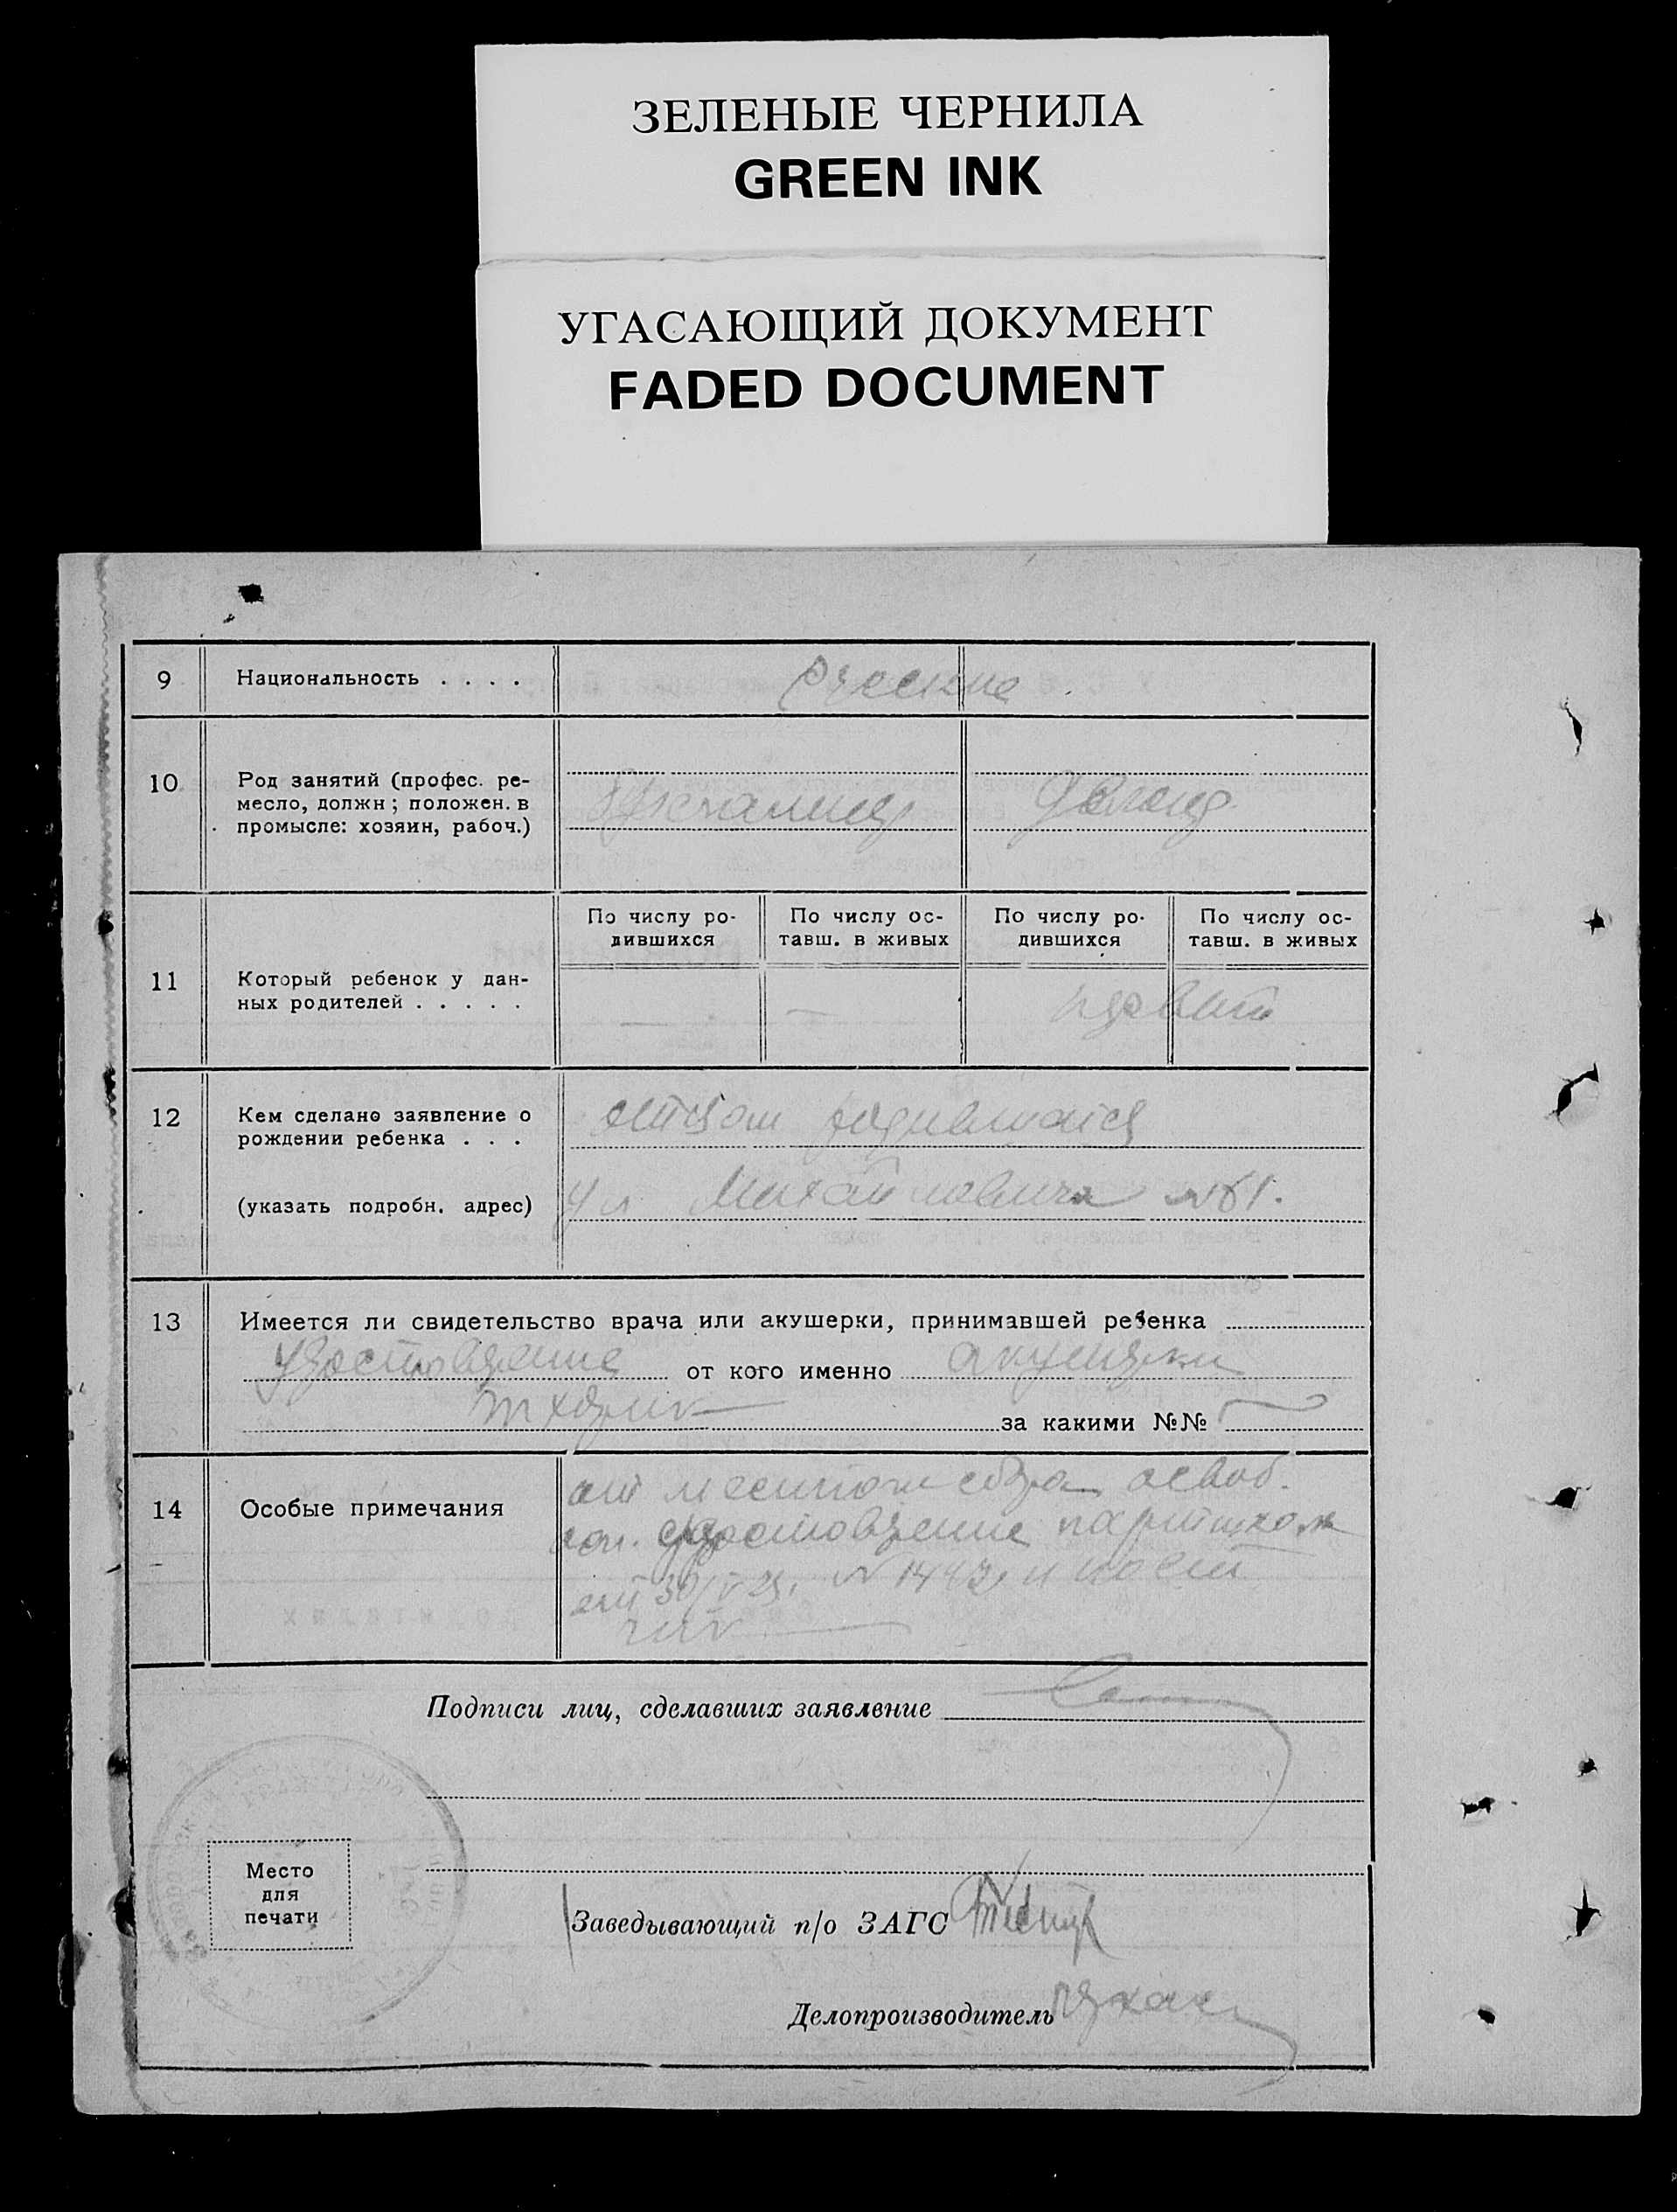 ЗЕЛЕНЫЕ ЧЕРНИЛА
GREEN INK
УГАСАЮЩИЙ ДОКУМЕНТ
FADED DOCUMENT
9 Национальность . . . . русские
10 Род занятий (профес. ре-
месло, должн; положен. в
промысле: хозяин, рабоч.)
По числу ро-
дившихся
По числу ос-
тавш. в живых
По числу ро-
дившихся
По числу ос-
тавш. в живых
11 Который ребенок у дан-
ных родителей . . . . .
— —
первый
12 Кем сделано заявление о
рождении ребенка . . .
отцом родившагося
(указать подробн. адрес) ул Михайловича № 61.
13 Имеется ли свидетельство врача или акушерки, принимавшей ребенка
удостоверение от кого именно акушерки
за какими №№ —
14 Особые примечания
от местном сбора освоб.
удостоверение
от 30/V 25,
Подписи лиц, сделавших заявление
Место
для
печати
Заведывающий п/о ЗАГС
Делопроизводитель